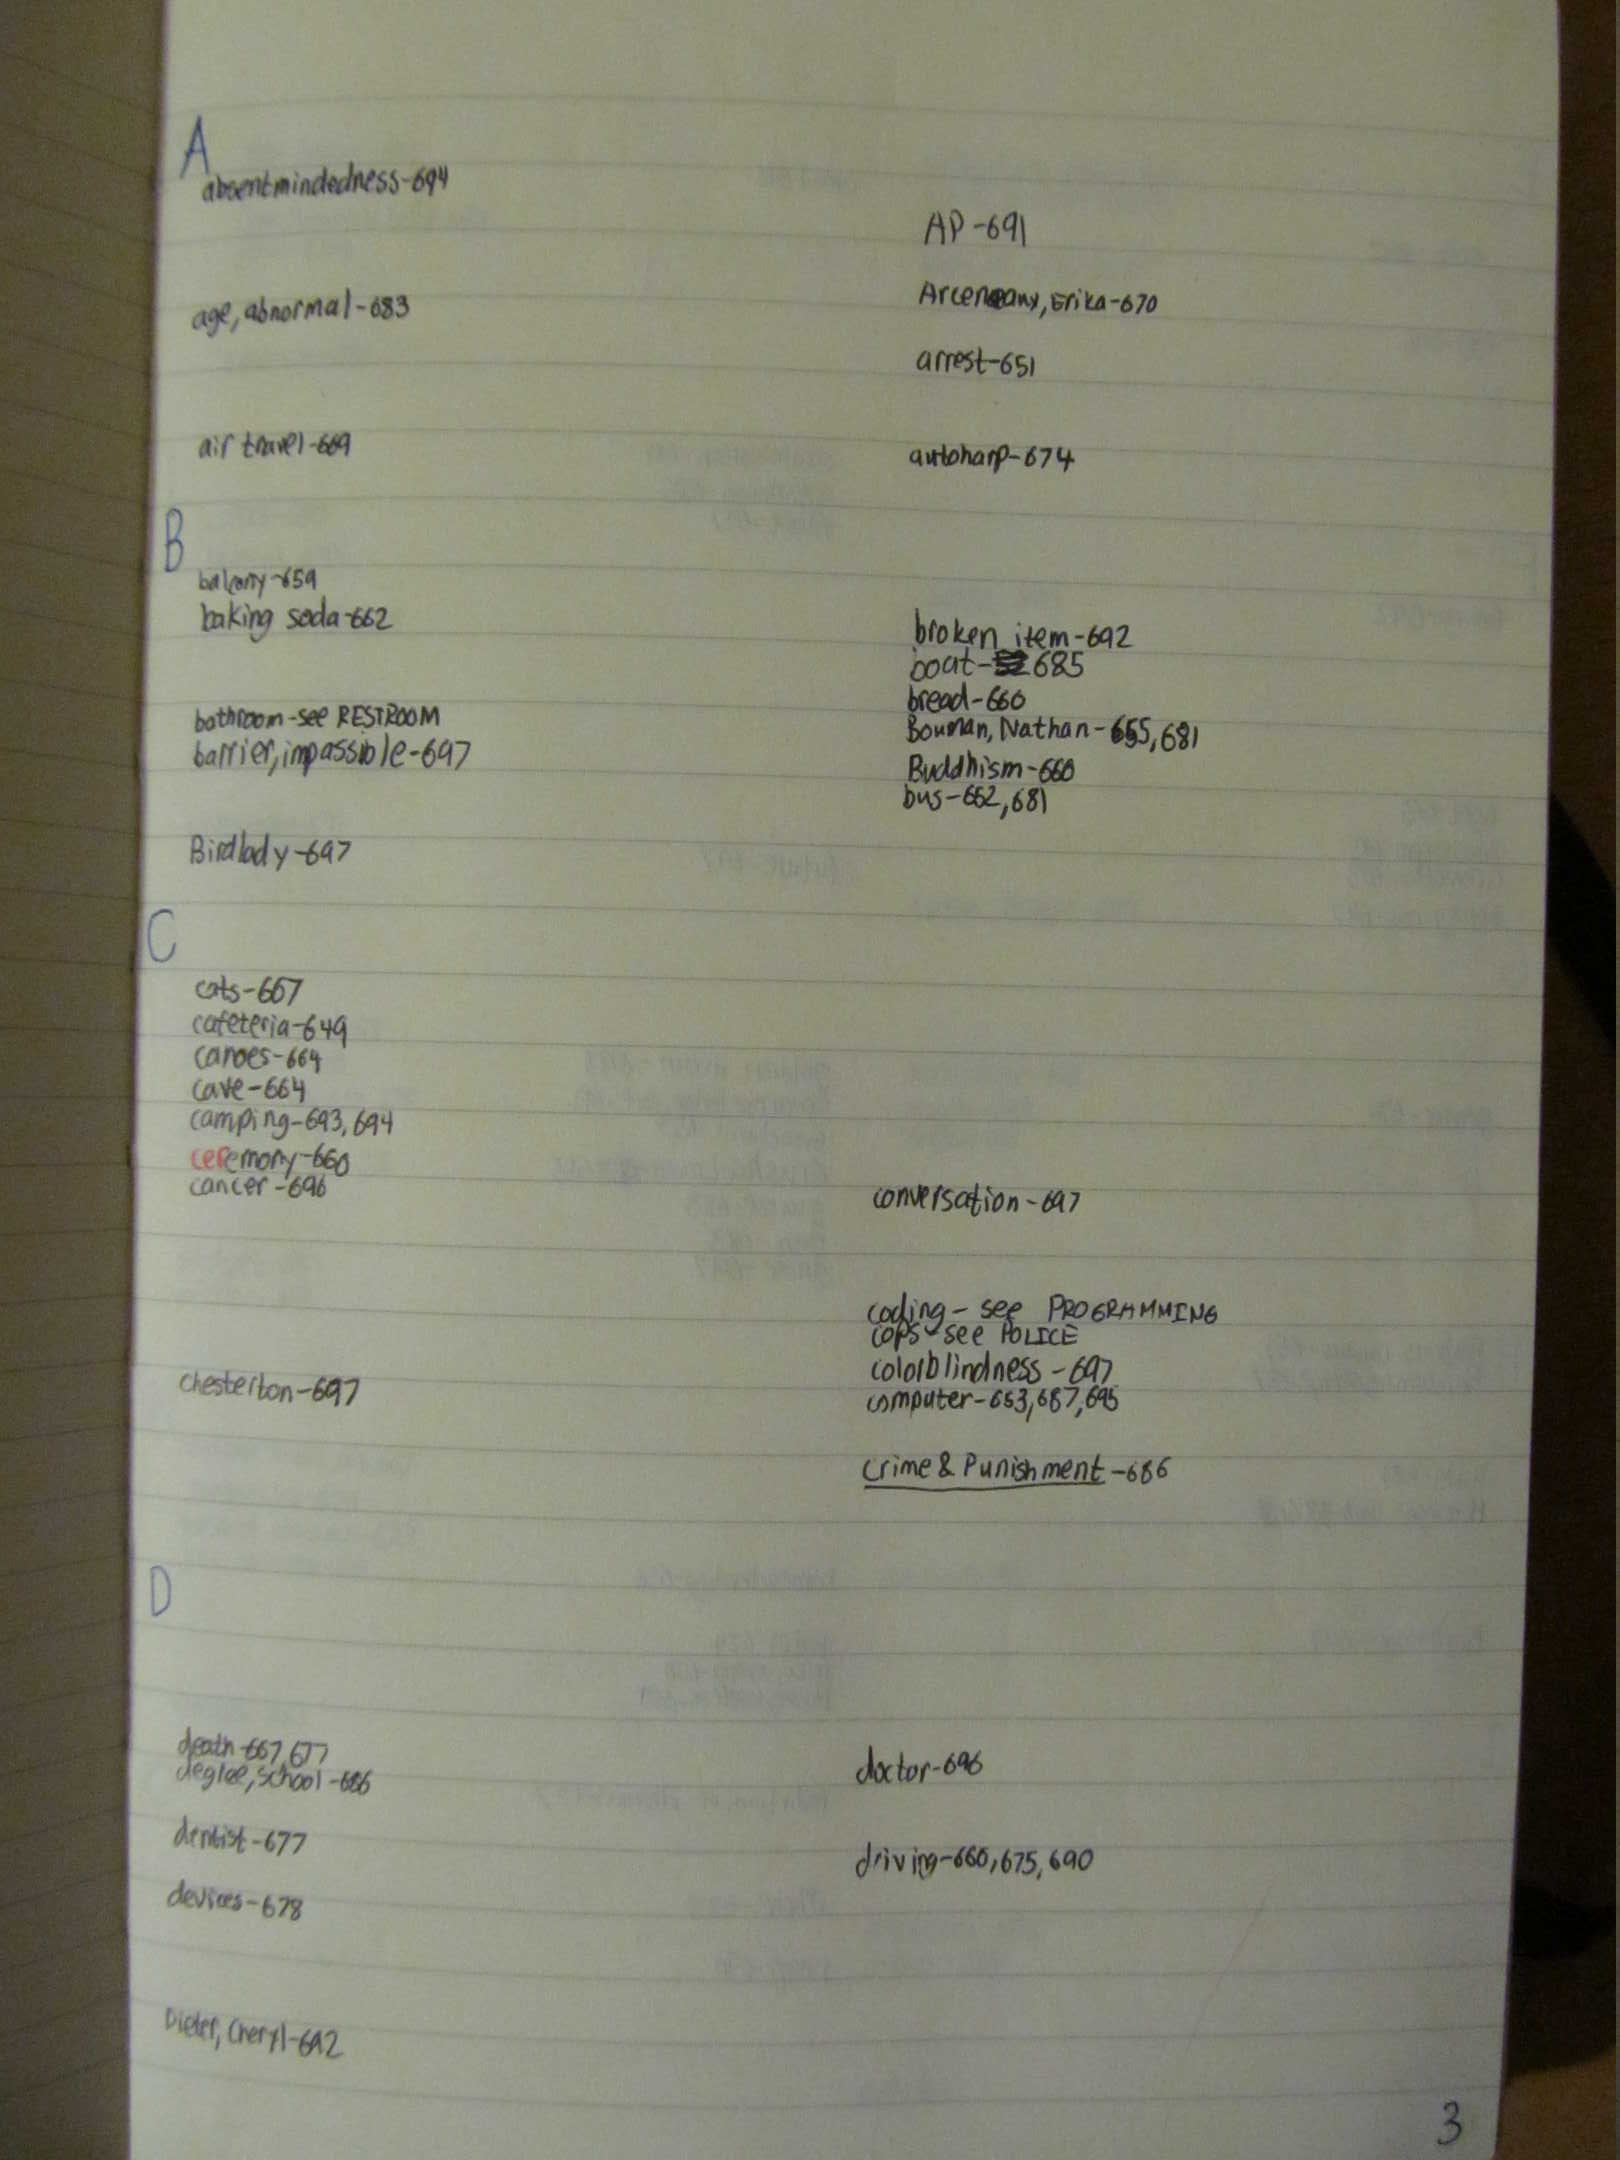 A
absentmindedness-694
age, abnormal-683
air travel-669
AP-691
Arceneaux, Erika-670
arrest-651
autoharp-674
B
balcony-659
baking soda-662
bathroom-see RESTROOM
barrier, impassible-697
Birdlady-697
broken item-692
boat-685
bread-660
Bouman, Nathan-655,681
Buddhism-660
bus-662,681
C
cats-667
cafeteria-649
canoes-664
cave-664
camping-693,694
ceremony-660
cancer-696
chesterton-697
conversation-697
coding-see PROGRAMMING
cops-see POLICE
colorblindness-697
computer-653,687,695
Crime & Punishment-686
D
death-667,677
degree, school-686
dentist-677
devices-678
Dieter, Cheryl-692
doctor-696
driving-660,675,690
3